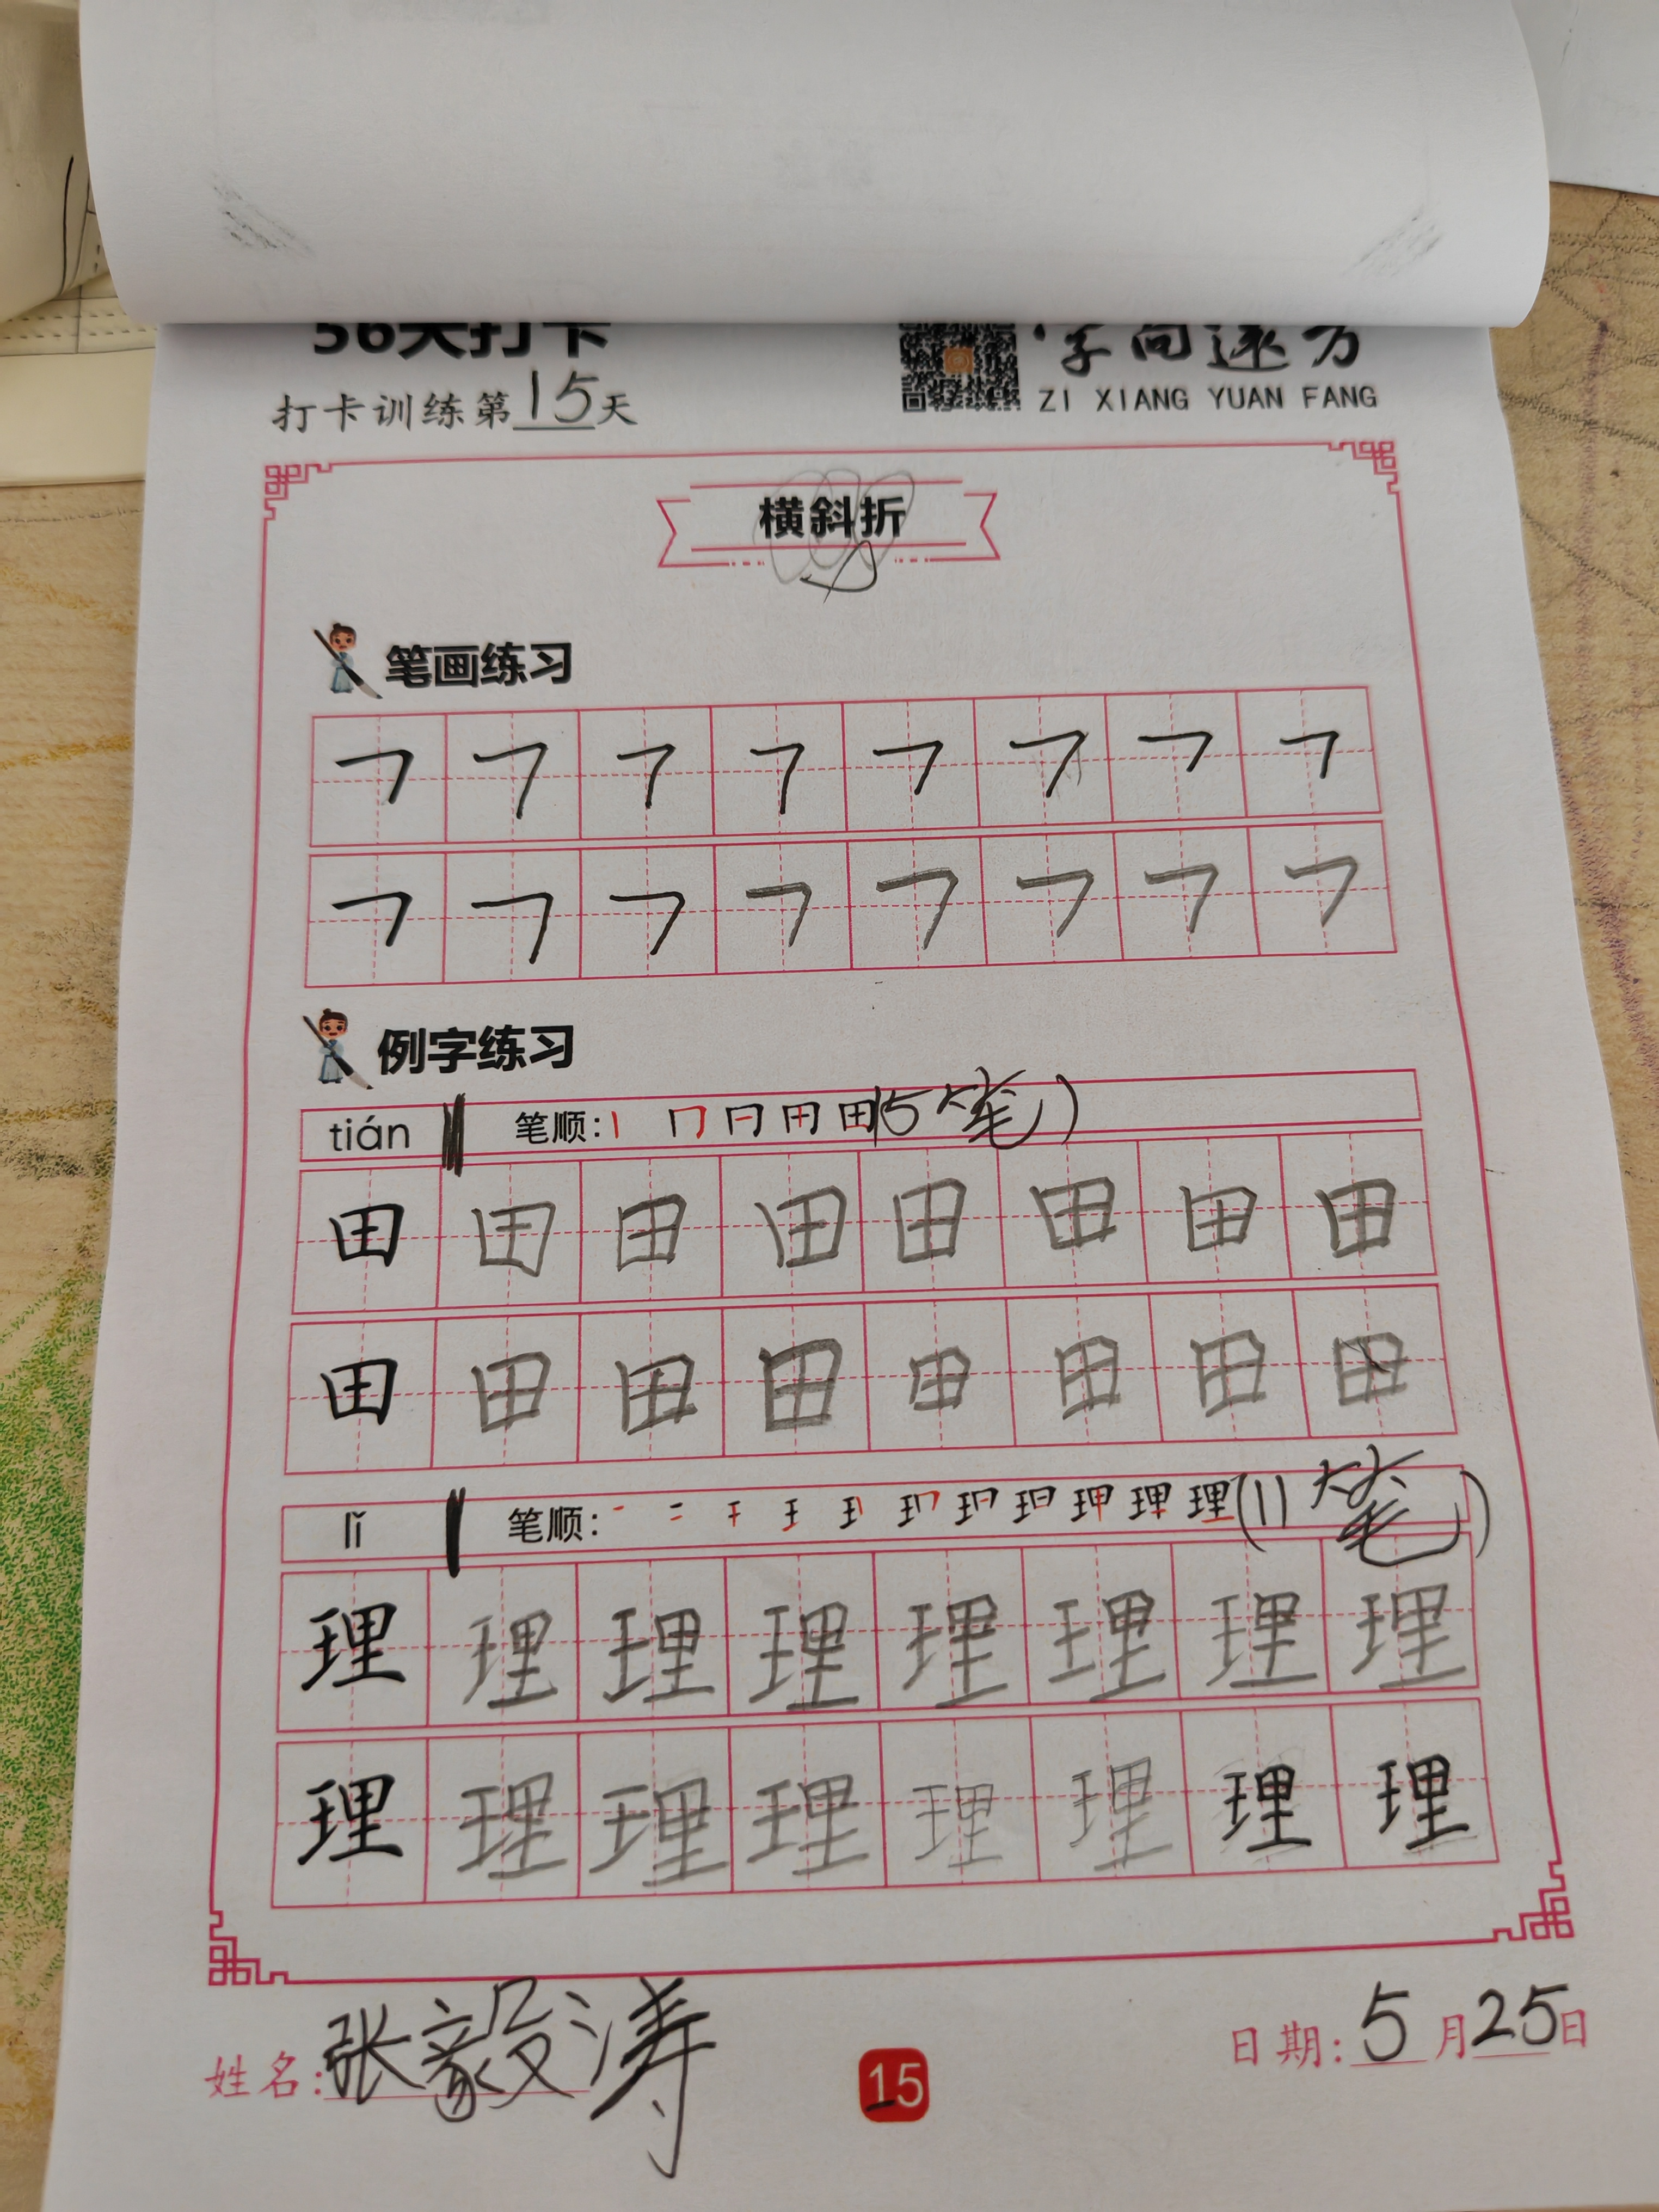 56天打卡
字向远方
打卡训练第15天
ZI XIANG YUAN FANG
横斜折
笔画练习
㇕ ㇕ ㇕ ㇕ ㇕ ㇕ ㇕ ㇕
㇕ ㇕ ㇕ ㇕ ㇕ ㇕ ㇕ ㇕
例字练习
tián 笔顺: 田(5笔)
田 田 田 田 田 田 田 田
田 田 田 田 田 田 田 田
lǐ 笔顺: 理(11笔)
理 理 理 理 理 理 理 理
理 理 理 理 理 理 理 理
姓名:张毅涛
15
日期:5月25日